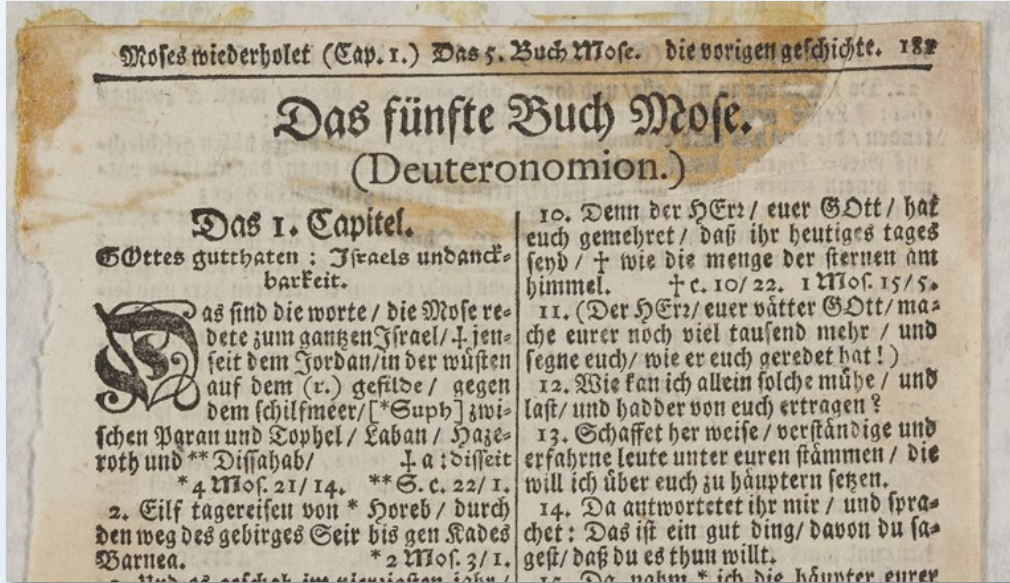 Moses wiederholet (Cap. 1.) Das 5. Buch Mose. die vorigen geschichte. 181
Das fünfte Buch Mose.
(Deuteronomion.)
Das 1. Capitel.
GOttes gutthaten : Jsraels undanck-
barkeit.
Das sind die worte / die Mose re-
dete zum gantzen Jsrael / ‡ jen-
seit dem Jordan / in der wüsten
auf dem (r.) gefilde / gegen
dem schilfmeer / [*Suph] zwi-
schen Paran und Tophel / Laban / Haze-
roth und ** Disahab / ‡ a : disseit
*4 Mos. 21/14. **S. c. 22/1.
2. Eilf tagereisen von * Horeb / durch
den weg des gebirges Seir bis gen Kades
Barnea. *2 Mos. 3/1.
3. Und es geschah im vierzigsten jahr /
10. Denn der HErr / euer GOtt / hat
euch gemehret / daß ihr heutiges tages
seyd / † wie die menge der sternen am
himmel. † c. 10/22. 1 Mos. 15/5.
11. (Der HErr / euer vätter GOtt / ma-
che eurer noch viel tausend mehr / und
segne euch / wie er euch geredet hat !)
12. Wie kan ich allein solche mühe / und
last / und hadder von euch ertragen ?
13. Schaffet her weise / verständige und
erfahrne leute unter euren stämmen / die
will ich über euch zu häuptern setzen.
14. Da antwortetet ihr mir / und spra-
chet : Das ist ein gut ding / davon du sa-
gest / daß du es thun willt.
15. Da nahm * ich die häupter eurer